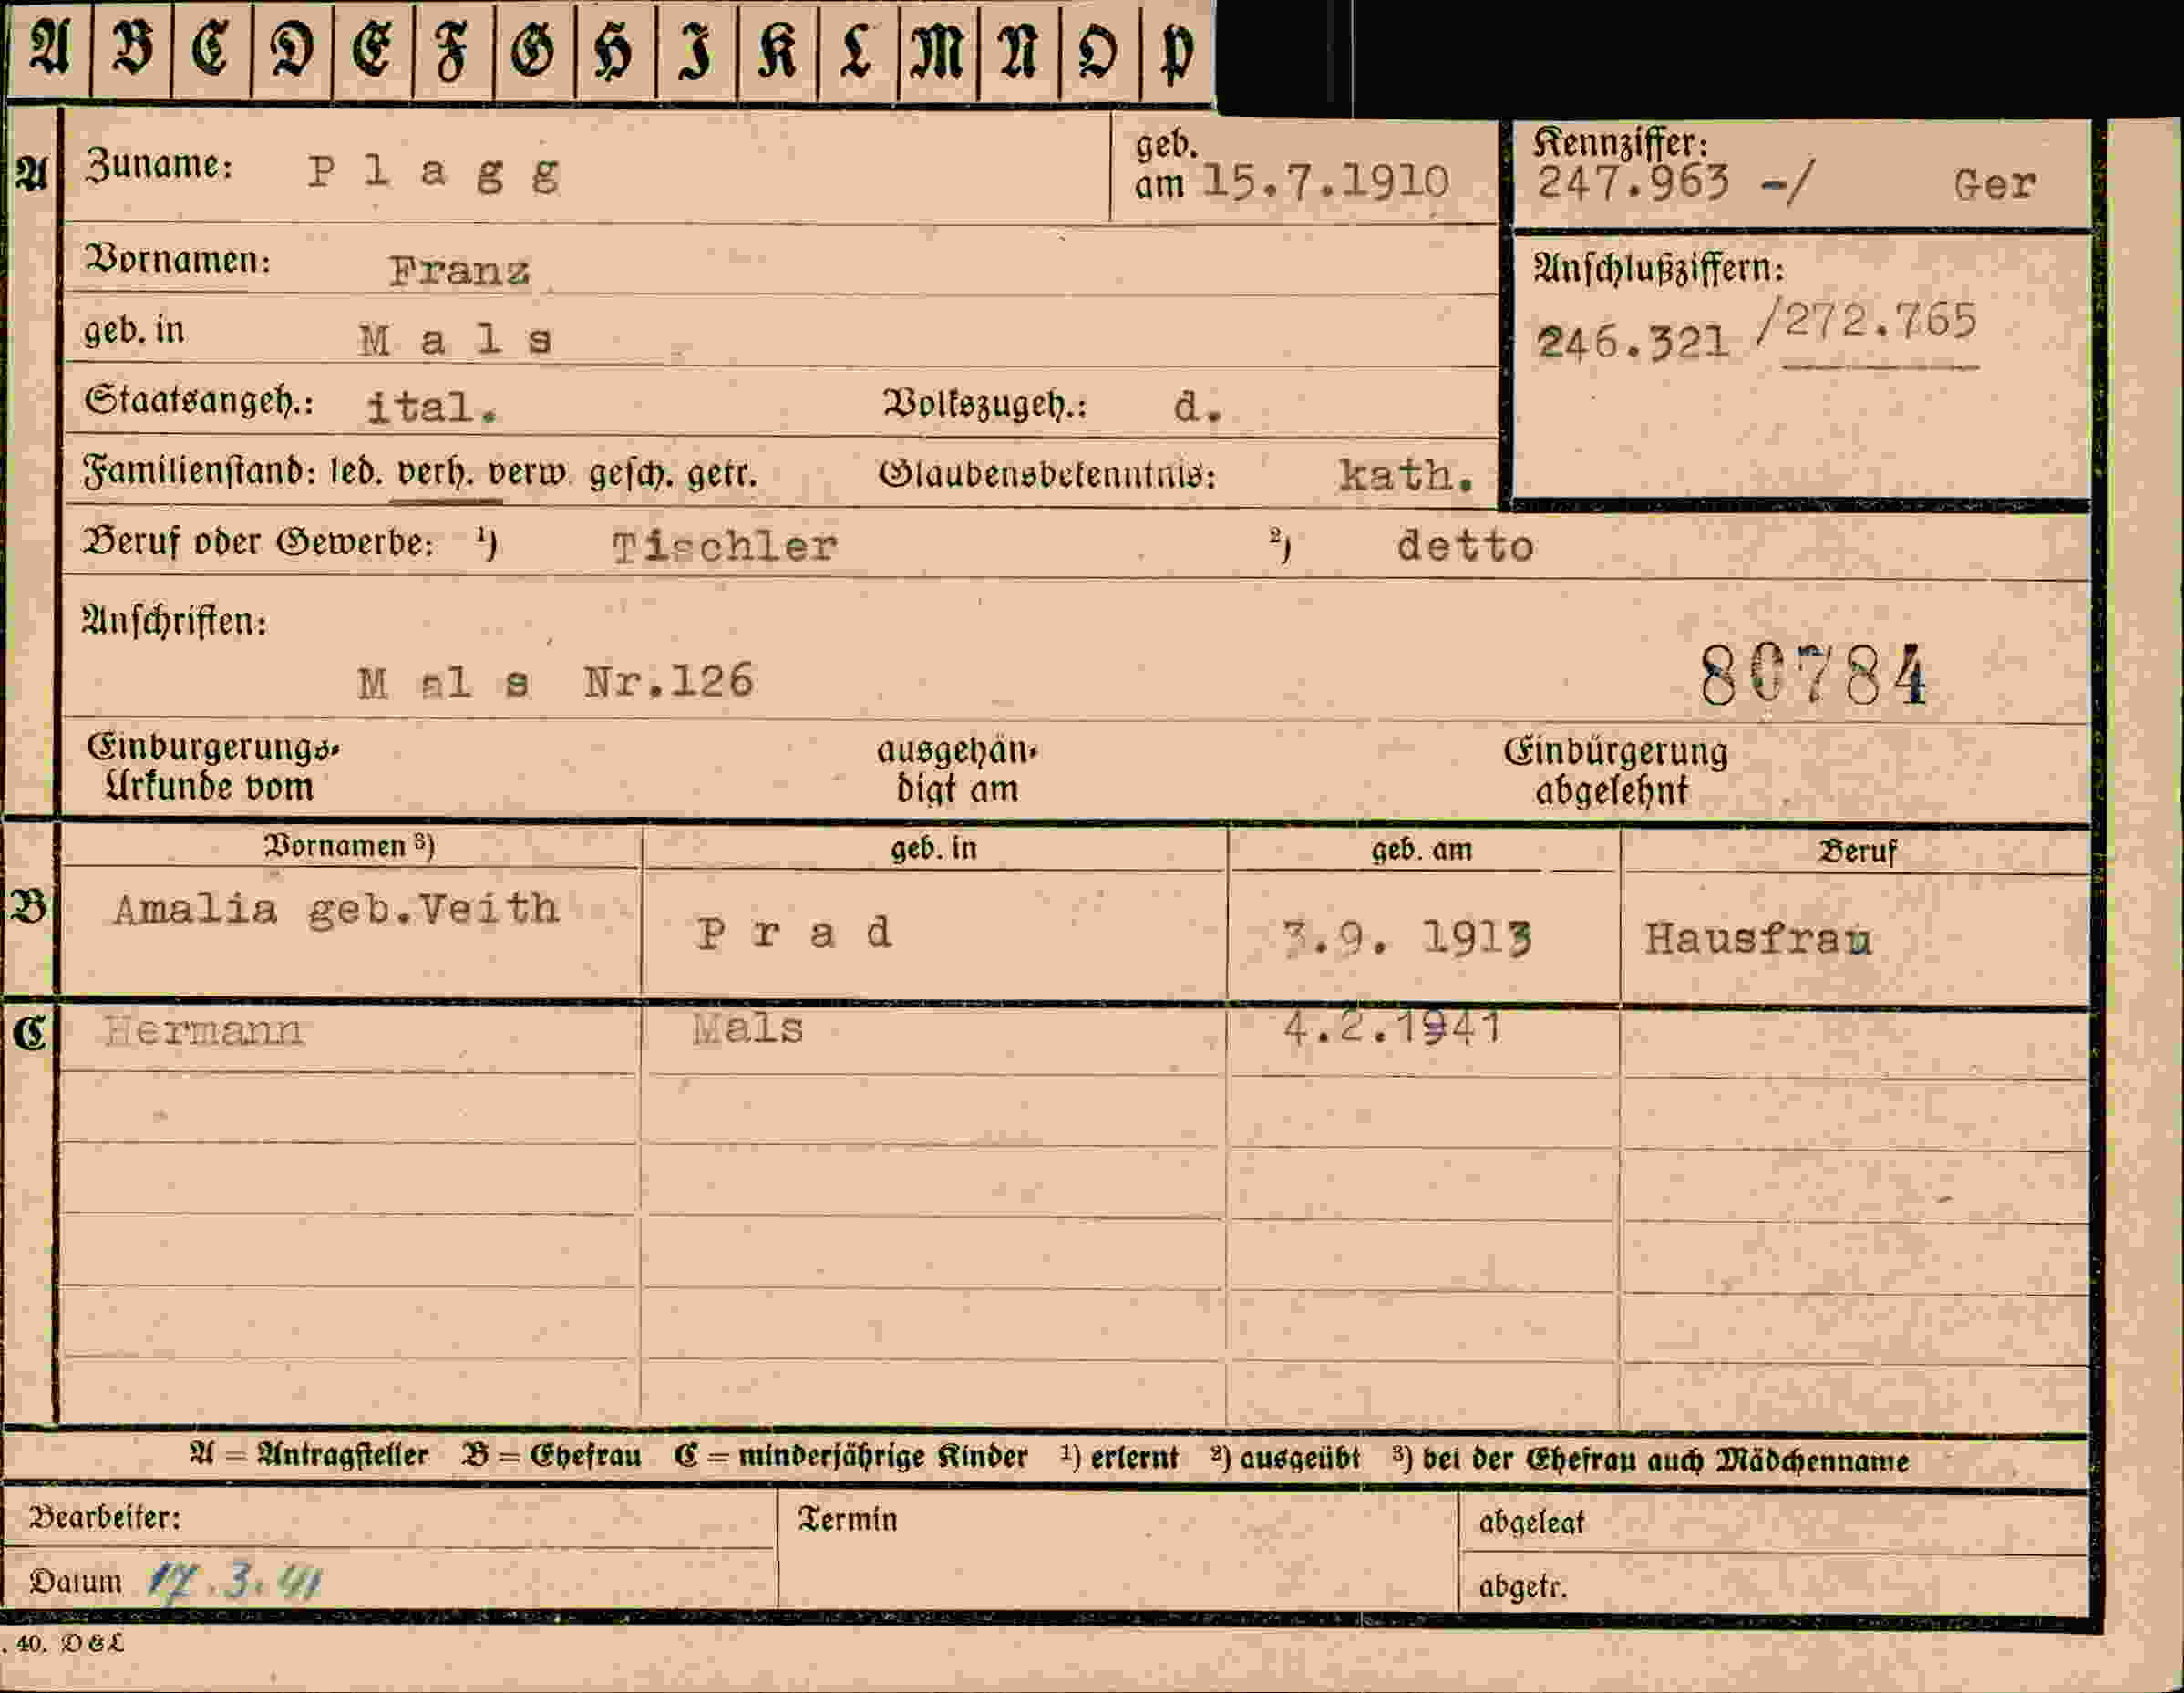 A B C D E F G H I K L M N O P
A Zuname: Plagg geb. am 15.7.1910 Kennziffer: 247.963 -/ Ger
Vornamen: Franz
geb. in Mals
Anschlußziffern: 246.321 /272.765
Staatsangeh.: ital. Volkszugeh.: d.
Familienstand: led. verh. verw. gesch. getr. Glaubensbekenntnis: kath.
Beruf oder Gewerbe: ¹) Tischler ²) detto
Anschriften:
Mals Nr.126 80784
Einbürgerungs- ausgehän- Einbürgerung
Urkunde vom digt am abgelehnt
Vornamen ³) geb. in geb. am Beruf
B Amalia geb.Veith Prad 3.9. 1913 Hausfrau
C Hermann Mals 4.2.1941
A = Antragsteller B = Ehefrau C = minderjährige Kinder ¹) erlernt ²) ausgeübt ³) bei der Ehefrau auch Mädchenname
Bearbeiter: Termin abgelegt
Datum 17.3.41 abgetr.
. 40. D & L